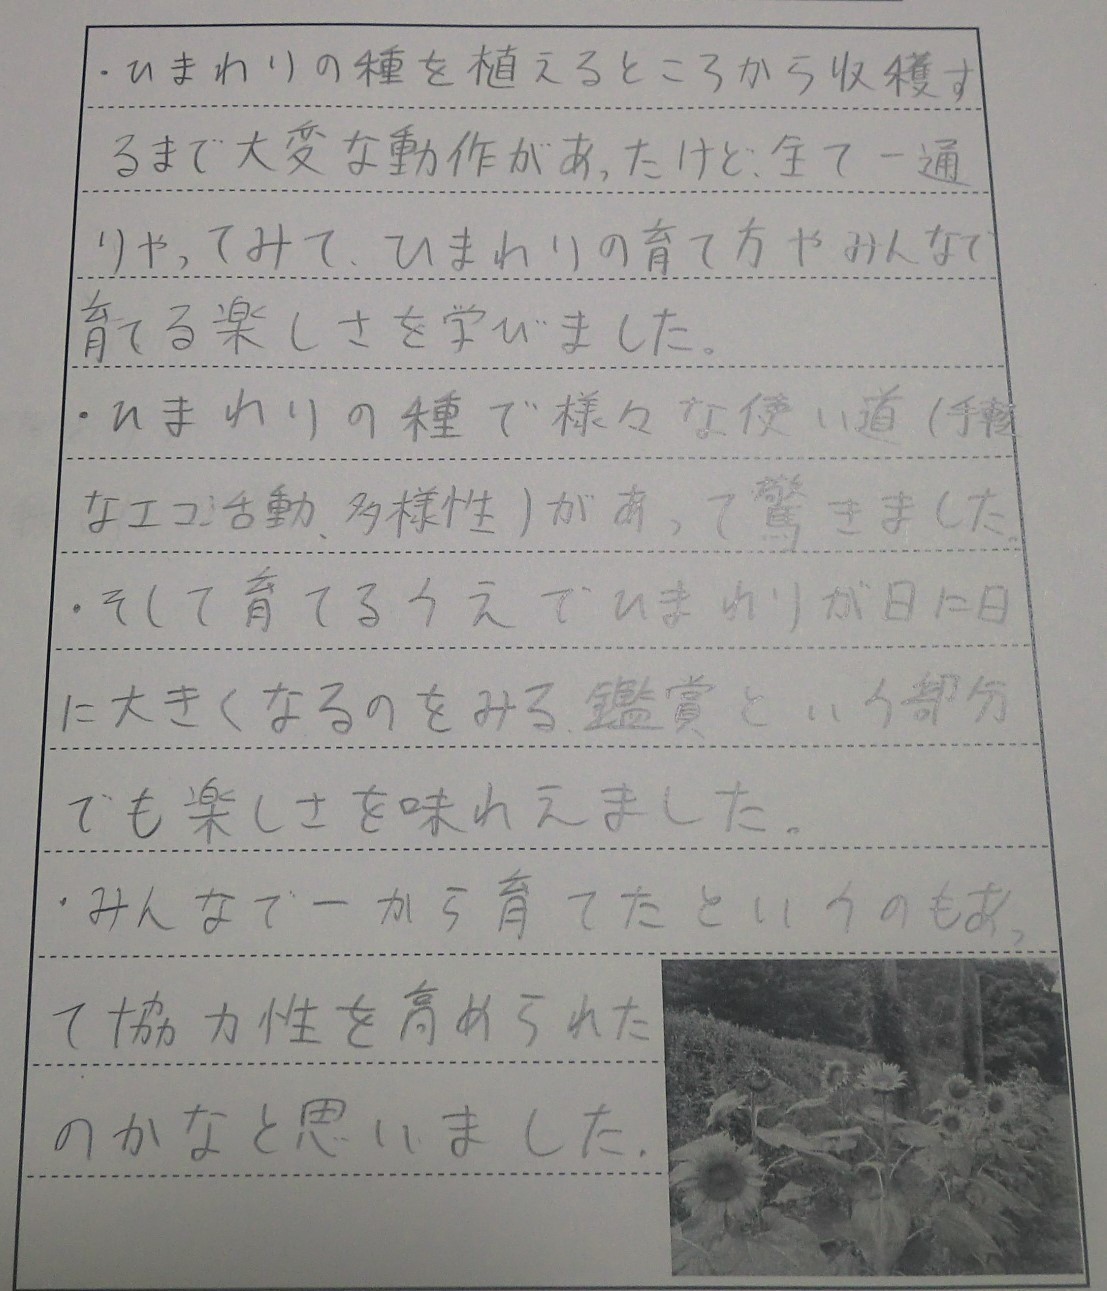 ・ひまわりの種を植えるところから収穫す
るまで大変な動作があったけど、全て一通
りやってみて、ひまわりの育て方やみんなで
育てる楽しさを学びました。
・ひまわりの種で様々な使い道(手軽
なエコ活動、多様性)があって驚きました。
・そして育てるうえでひまわりが日に日
に大きくなるのをみる、鑑賞という部分
でも楽しさを味れえました。
・みんなで一から育てたというのもあっ
て協力性を高められた
のかなと思いました。